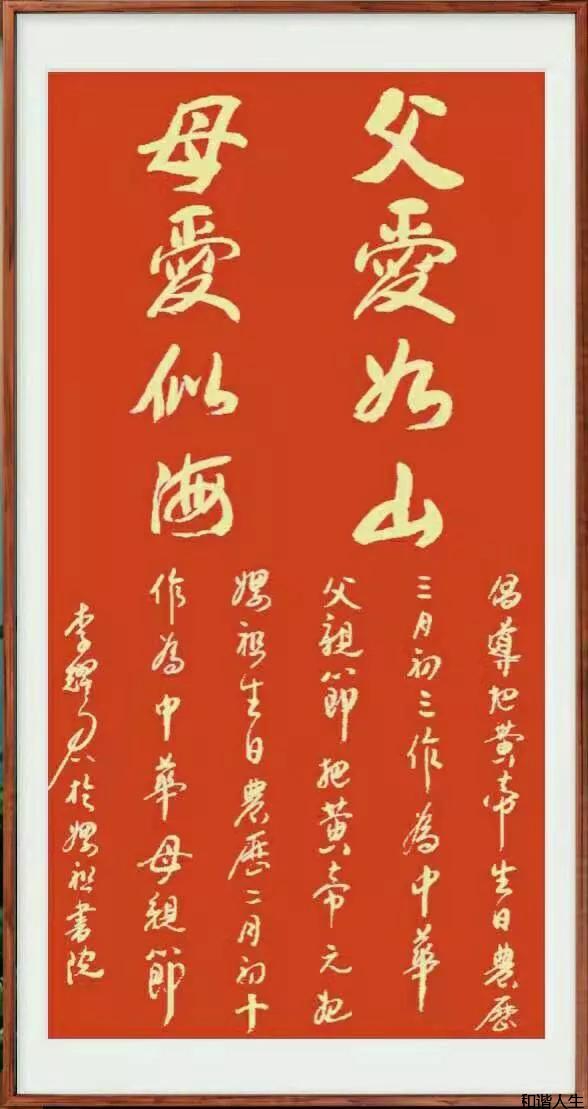 父愛如山
母愛似海
倡導把黄帝生日農歷
三月初三作為中華
父親節把黄帝元妃
嫘祖生日農歷二月初十
作為中華母親節
李耀君於嫘祖書院
和谐人生